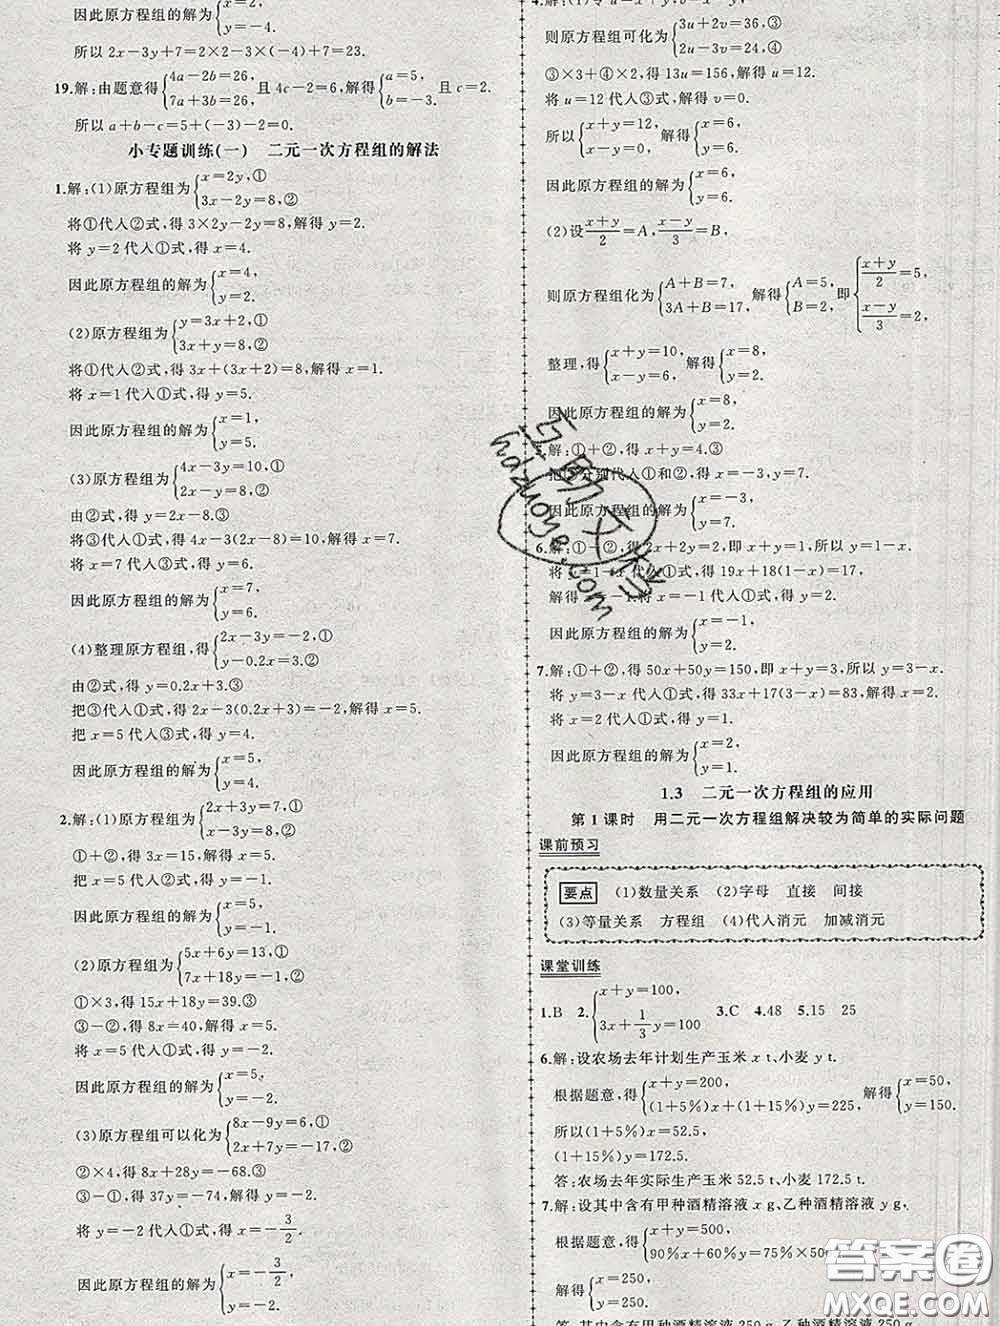 因此原方程组的解为{x=2, y=-4.
所以 2x-3y+7=2×2-3×(-4)+7=23.
19.解:由题意得{4a-2b=26, 7a+3b=26, 且 4c-2=6,解得{a=5, b=-3. 且 c=2.
所以 a+b-c=5+(-3)-2=0.
小专题训练(一) 二元一次方程组的解法
1.解:(1)原方程组为{x=2y,① 3x-2y=8,②
将①代入②式,得 3×2y-2y=8,解得 y=2.
将 y=2 代入①式,得 x=4.
因此原方程组的解为{x=4, y=2.
(2)原方程组为{y=3x+2,① 3x+y=8,②
将①代入②式,得 3x+(3x+2)=8,解得 x=1.
将 x=1 代入①式,得 y=5.
因此原方程组的解为{x=1, y=5.
(3)原方程组为{4x-3y=10,① 2x-y=8,②
由②式,得 y=2x-8.③
将③代入①式,得 4x-3(2x-8)=10,解得 x=7.
将 x=7 代入③式,得 y=6.
因此原方程组的解为{x=7, y=6.
(4)整理原方程组,得{2x-3y=-2,① y-0.2x=3.②
由②式,得 y=0.2x+3.③
把③代入①式,得 2x-3(0.2x+3)=-2,解得 x=5.
把 x=5 代入③式,得 y=4.
因此原方程组的解为{x=5, y=4.
2.解:(1)原方程组为{2x+3y=7,① x-3y=8.②
①+②,得 3x=15,解得 x=5.
把 x=5 代入①式,得 y=-1.
因此原方程组的解为{x=5, y=-1.
(2)原方程组为{5x+6y=13,① 7x+18y=-1.②
①×3,得 15x+18y=39.③
③-②,得 8x=40,解得 x=5.
将 x=5 代入①式,得 y=-2.
因此原方程组的解为{x=5, y=-2.
(3)原方程组可以化为{8x-9y=6,① 2x+7y=-17,②
②×4,得 8x+28y=-68.③
③-①,得 37y=-74,解得 y=-2.
将 y=-2 代入①式,得 x=-3/2.
因此原方程组的解为{x=-3/2, y=-2.
则原方程组可化为{3u+2v=36,③ 2u-3v=24,④
③×3+④×2,得 13u=156,解得 u=12.
将 u=12 代入③式,解得 v=0.
所以{x+y=12, x-y=0. 解得{x=6, y=6.
因此原方程组的解为{x=6, y=6.
(2)设(x+y)/2=A,(x-y)/3=B,
则原方程组化为{A+B=7, 3A+B=17, 解得{A=5, B=2, 即{(x+y)/2=5, (x-y)/3=2,
整理,得{x+y=10, x-y=6, 解得{x=8, y=2.
因此原方程组的解为{x=8, y=2.
5.解:①+②,得 x+y=4.③
把③分别代入①和②,得 x=-3,y=7.
因此原方程组的解为{x=-3, y=7.
6.解:①-②,得 2x+2y=2,即 x+y=1,所以 y=1-x.
将 y=1-x 代入①式,得 19x+18(1-x)=17,
解得 x=-1.将 x=-1 代入①式,得 y=2.
因此原方程组的解为{x=-1, y=2.
7.解:①+②,得 50x+50y=150,即 x+y=3,所以 y=3-x.
将 y=3-x 代入①式,得 33x+17(3-x)=83,解得 x=2.
将 x=2 代入①式,得 y=1.
因此原方程组的解为{x=2, y=1.
1.3 二元一次方程组的应用
第 1 课时 用二元一次方程组解决较为简单的实际问题
课前预习
要点 (1)数量关系 (2)字母 直接 间接
(3)等量关系 方程组 (4)代入消元 加减消元
课堂训练
1.B 2.{x+y=100, 3x+1/3y=100 3.C 4.48 5.15 25
6.解:设农场去年计划生产玉米 x t、小麦 y t.
根据题意,得{x+y=200, (1+5%)x+(1+15%)y=225, 解得{x=50, y=150.
所以(1+5%)x=52.5,
(1+15%)y=172.5.
答:农场去年实际生产玉米 52.5 t、小麦 172.5 t.
7.解:设其中含有甲种酒精溶液 x g,乙种酒精溶液 y g,
根据题意,得{x+y=500, 90%x+60%y=75%×500
解得{x=250, y=250.
答:其中含有甲种酒精溶液 250 g,乙种酒精溶液 250 g.
hdzuoye.com
答案圈
MXQE.COM